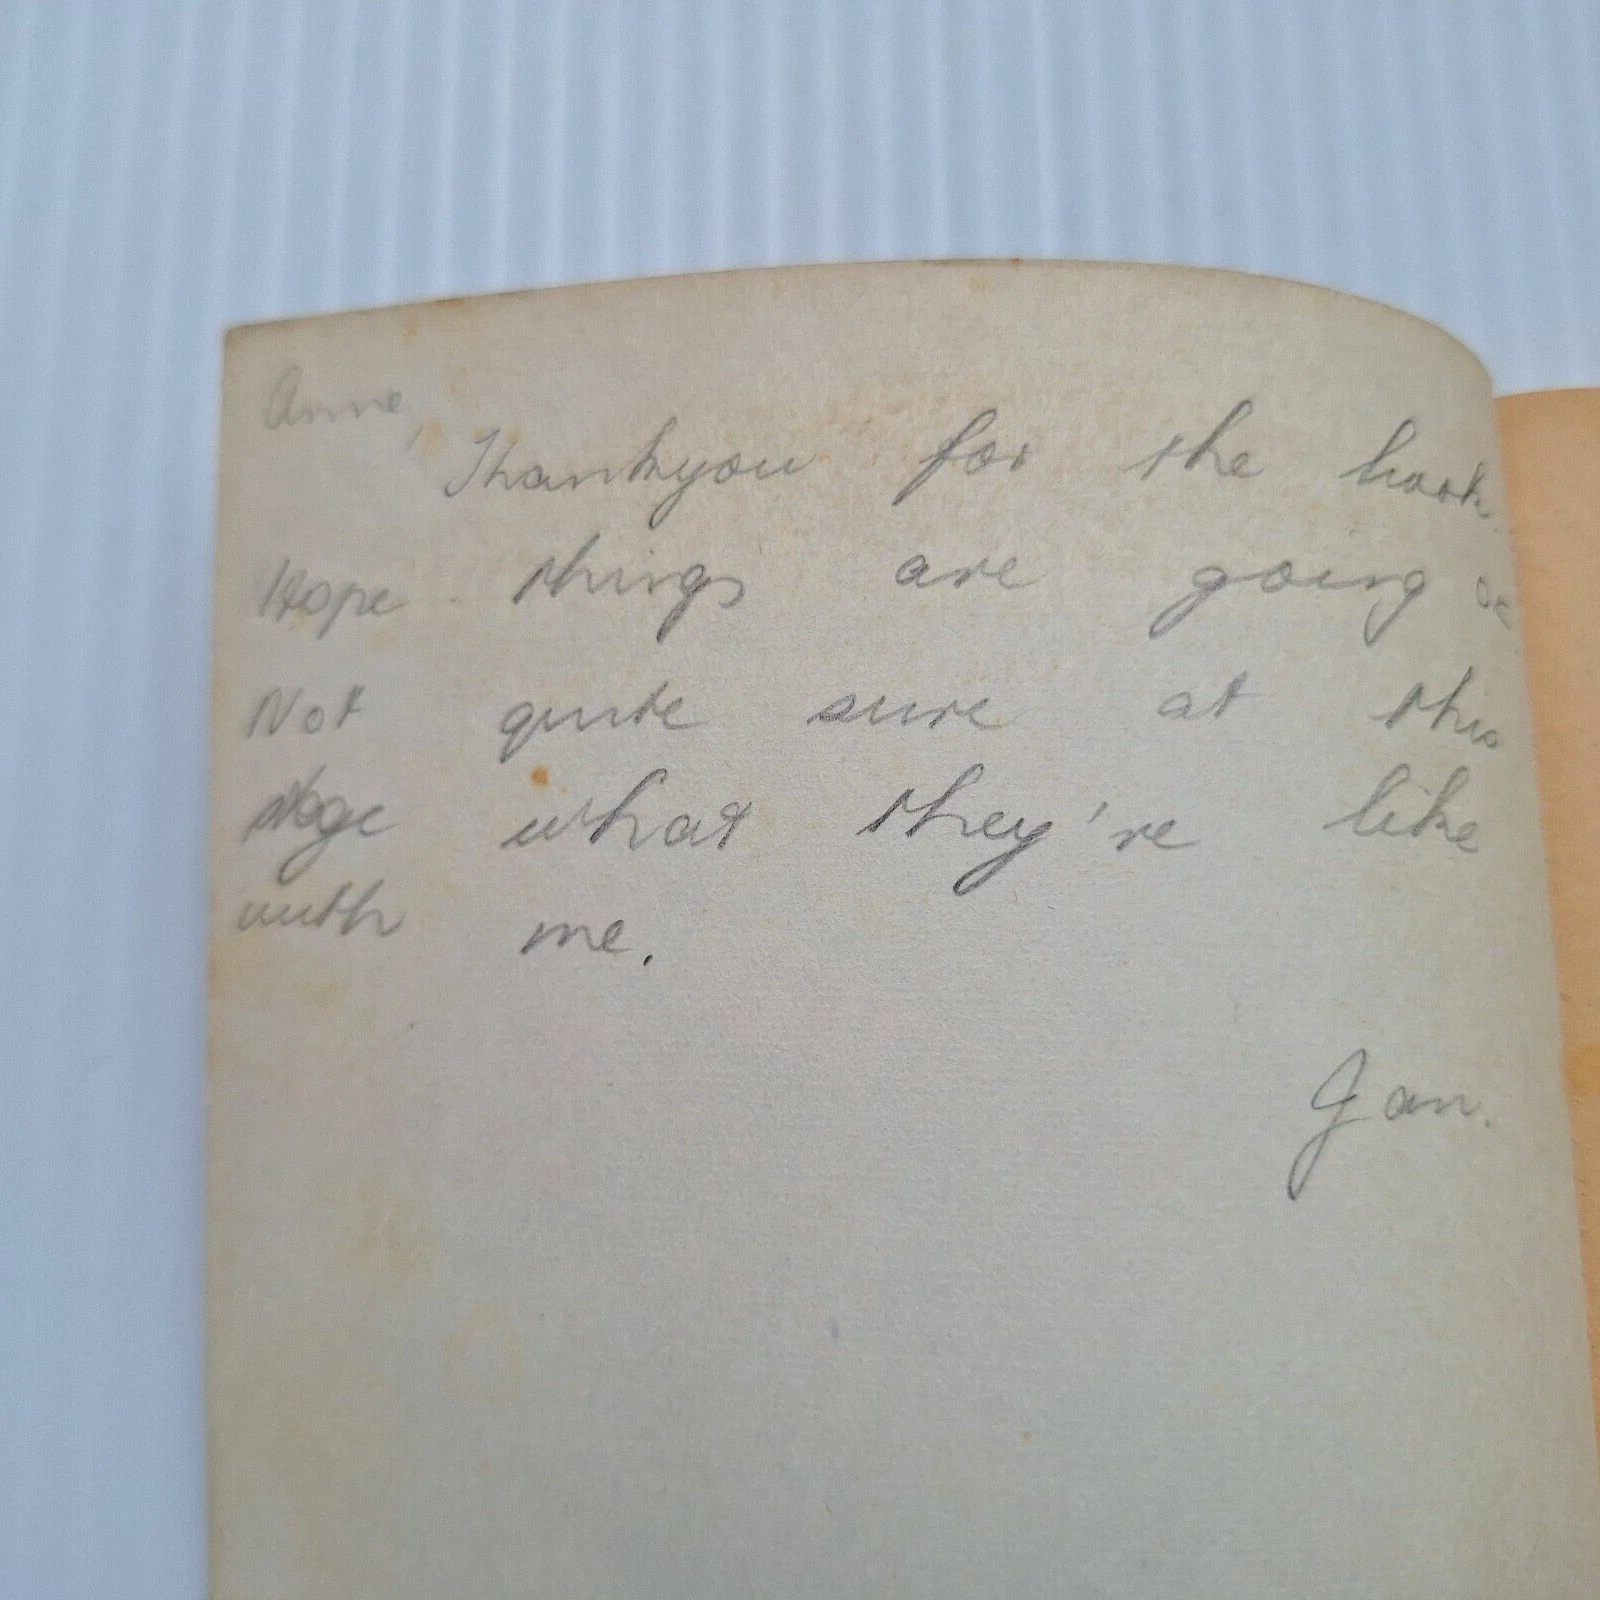 Anne,
Thankyou for the book.
Hope things are going
Not quite sure at this
stage what they're like
with me.
Jan.